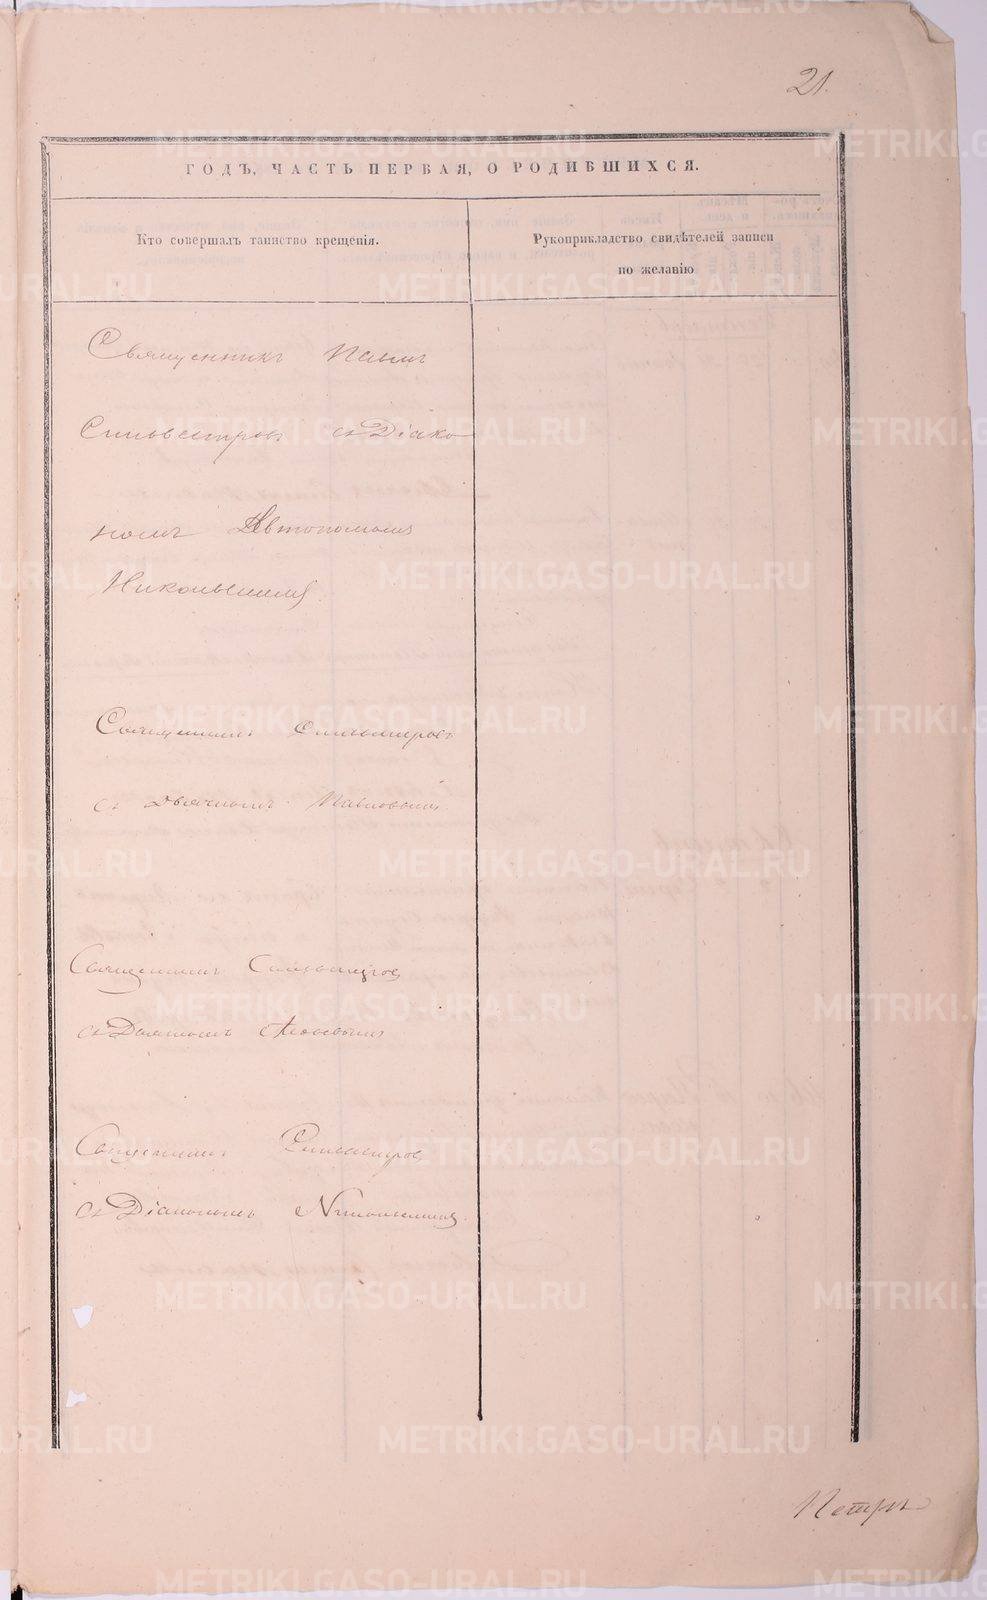 21.
ГОДЪ, ЧАСТЬ ПЕРВАЯ, О РОДИВШИХСЯ.
Кто совершалъ таинство крещенія.
Рукоприкладство свидѣтелей записи
по желанію
Священникъ Павелъ
Сильвестровъ съ Діако
номъ Автономомъ
Никольскимъ
Священникъ Сильвестровъ
съ Дьячкомъ Павловымъ
Священникъ Сильвестровъ
съ
Священникъ Сильвестровъ
съ Діакономъ Никольскимъ
METRIKI.GASO-URAL.RU